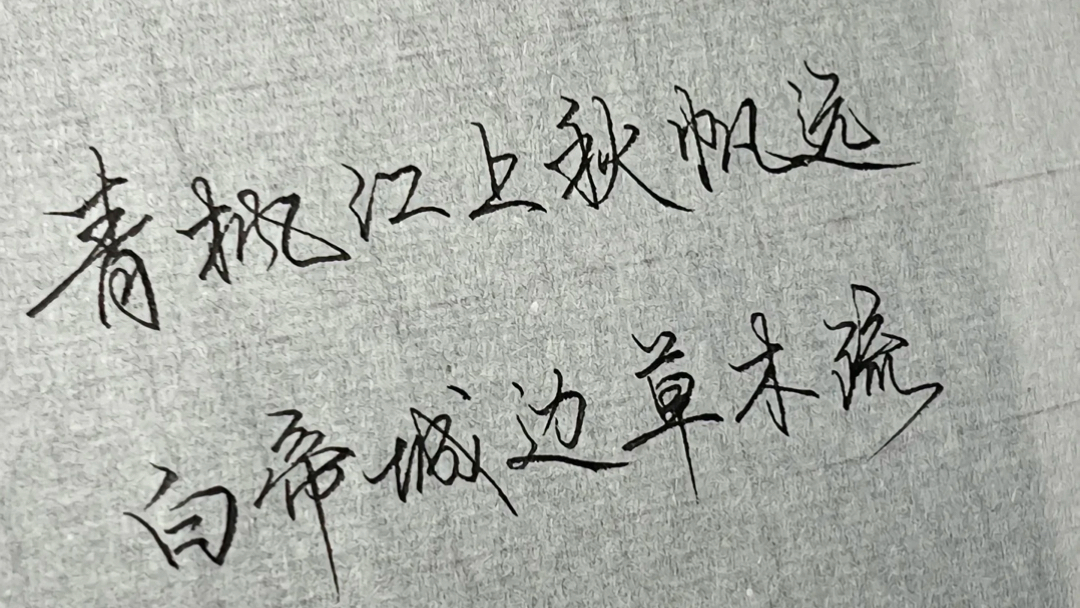 青枫江上秋帆远
白帝城边草木疏